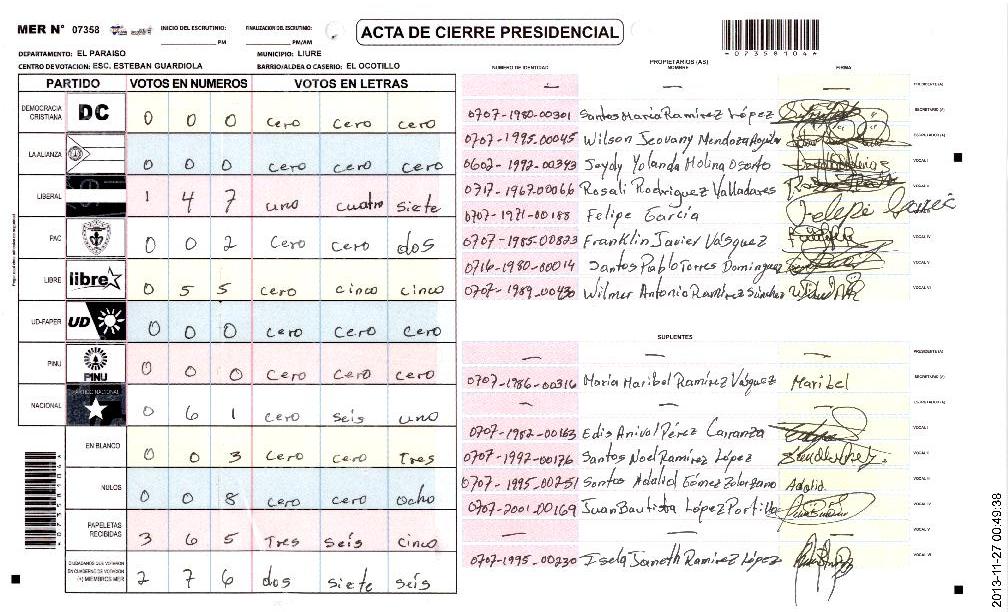 MER N° 07358 INICIO DEL ESCRUTINIO: FINALIZACION DEL ESCRUTINIO: ACTA DE CIERRE PRESIDENCIAL
PM PM/AM
*07358104*
DEPARTAMENTO: EL PARAISO MUNICIPIO: LIURE
CENTRO DE VOTACION: ESC. ESTEBAN GUARDIOLA BARRIO/ALDEA O CASERIO: EL OCOTILLO
PARTIDO VOTOS EN NUMEROS VOTOS EN LETRAS
DEMOCRACIA CRISTIANA DC 0 0 0 cero cero cero
LA ALIANZA 0 0 0 cero cero cero
LIBERAL 1 4 7 uno cuatro siete
PAC 0 0 2 cero cero dos
LIBRE libre 0 5 5 cero cinco cinco
UD-FAPER UD 0 0 0 cero cero cero
PINU PINU 0 0 0 cero cero cero
NACIONAL 0 6 1 cero seis uno
EN BLANCO 0 0 3 cero cero Tres
NULOS 0 0 8 cero cero ocho
PAPELETAS RECIBIDAS 3 6 5 Tres seis cinco
CIUDADANOS QUE VOTARON EN CUADERNO DE VOTACION (+) MIEMBROS MER 2 7 6 dos siete seis
PROPIETARIOS (AS)
NUMERO DE IDENTIDAD NOMBRE FIRMA
— — — PRESIDENTE (A)
0707-1980-00301 Santos Maria Ramirez López SECRETARIO (A)
0707-1995-00045 Wilson Jeovany Mendoza Aguilar ESCRUTADOR (A)
0602-1992-00343 Jeydy Yolanda Molina Osorto VOCAL I
0717-1967-00066 Rosali Rodriguez Valladares VOCAL II
0707-1971-00188 Felipe García Felipe García VOCAL III
0707-1985-00823 Franklin Javier Vásquez VOCAL IV
0716-1980-00014 Santos Pablo Torres Dominguez VOCAL V
0707-1989-00430 Wilmer Antonio Ramírez Sánchez VOCAL VI
SUPLENTES
— — — PRESIDENTE (A)
0707-1986-00316 Maria Maribel Ramírez Vásquez Maribel SECRETARIO (A)
— — — ESCRUTADOR (A)
0707-1982-00163 Edis Anivol Pérez Carranza VOCAL I
0707-1992-00176 Santos Noel Ramírez López VOCAL II
0707-1995-00251 Santos Adalid Gómez Adalid VOCAL III
0707-2001-00169 Juan Bautista López Portillo VOCAL IV
— — VOCAL V
0707-1995-00230 Isela Janeth Ramirez López VOCAL VI
2013-11-27 00:49:38